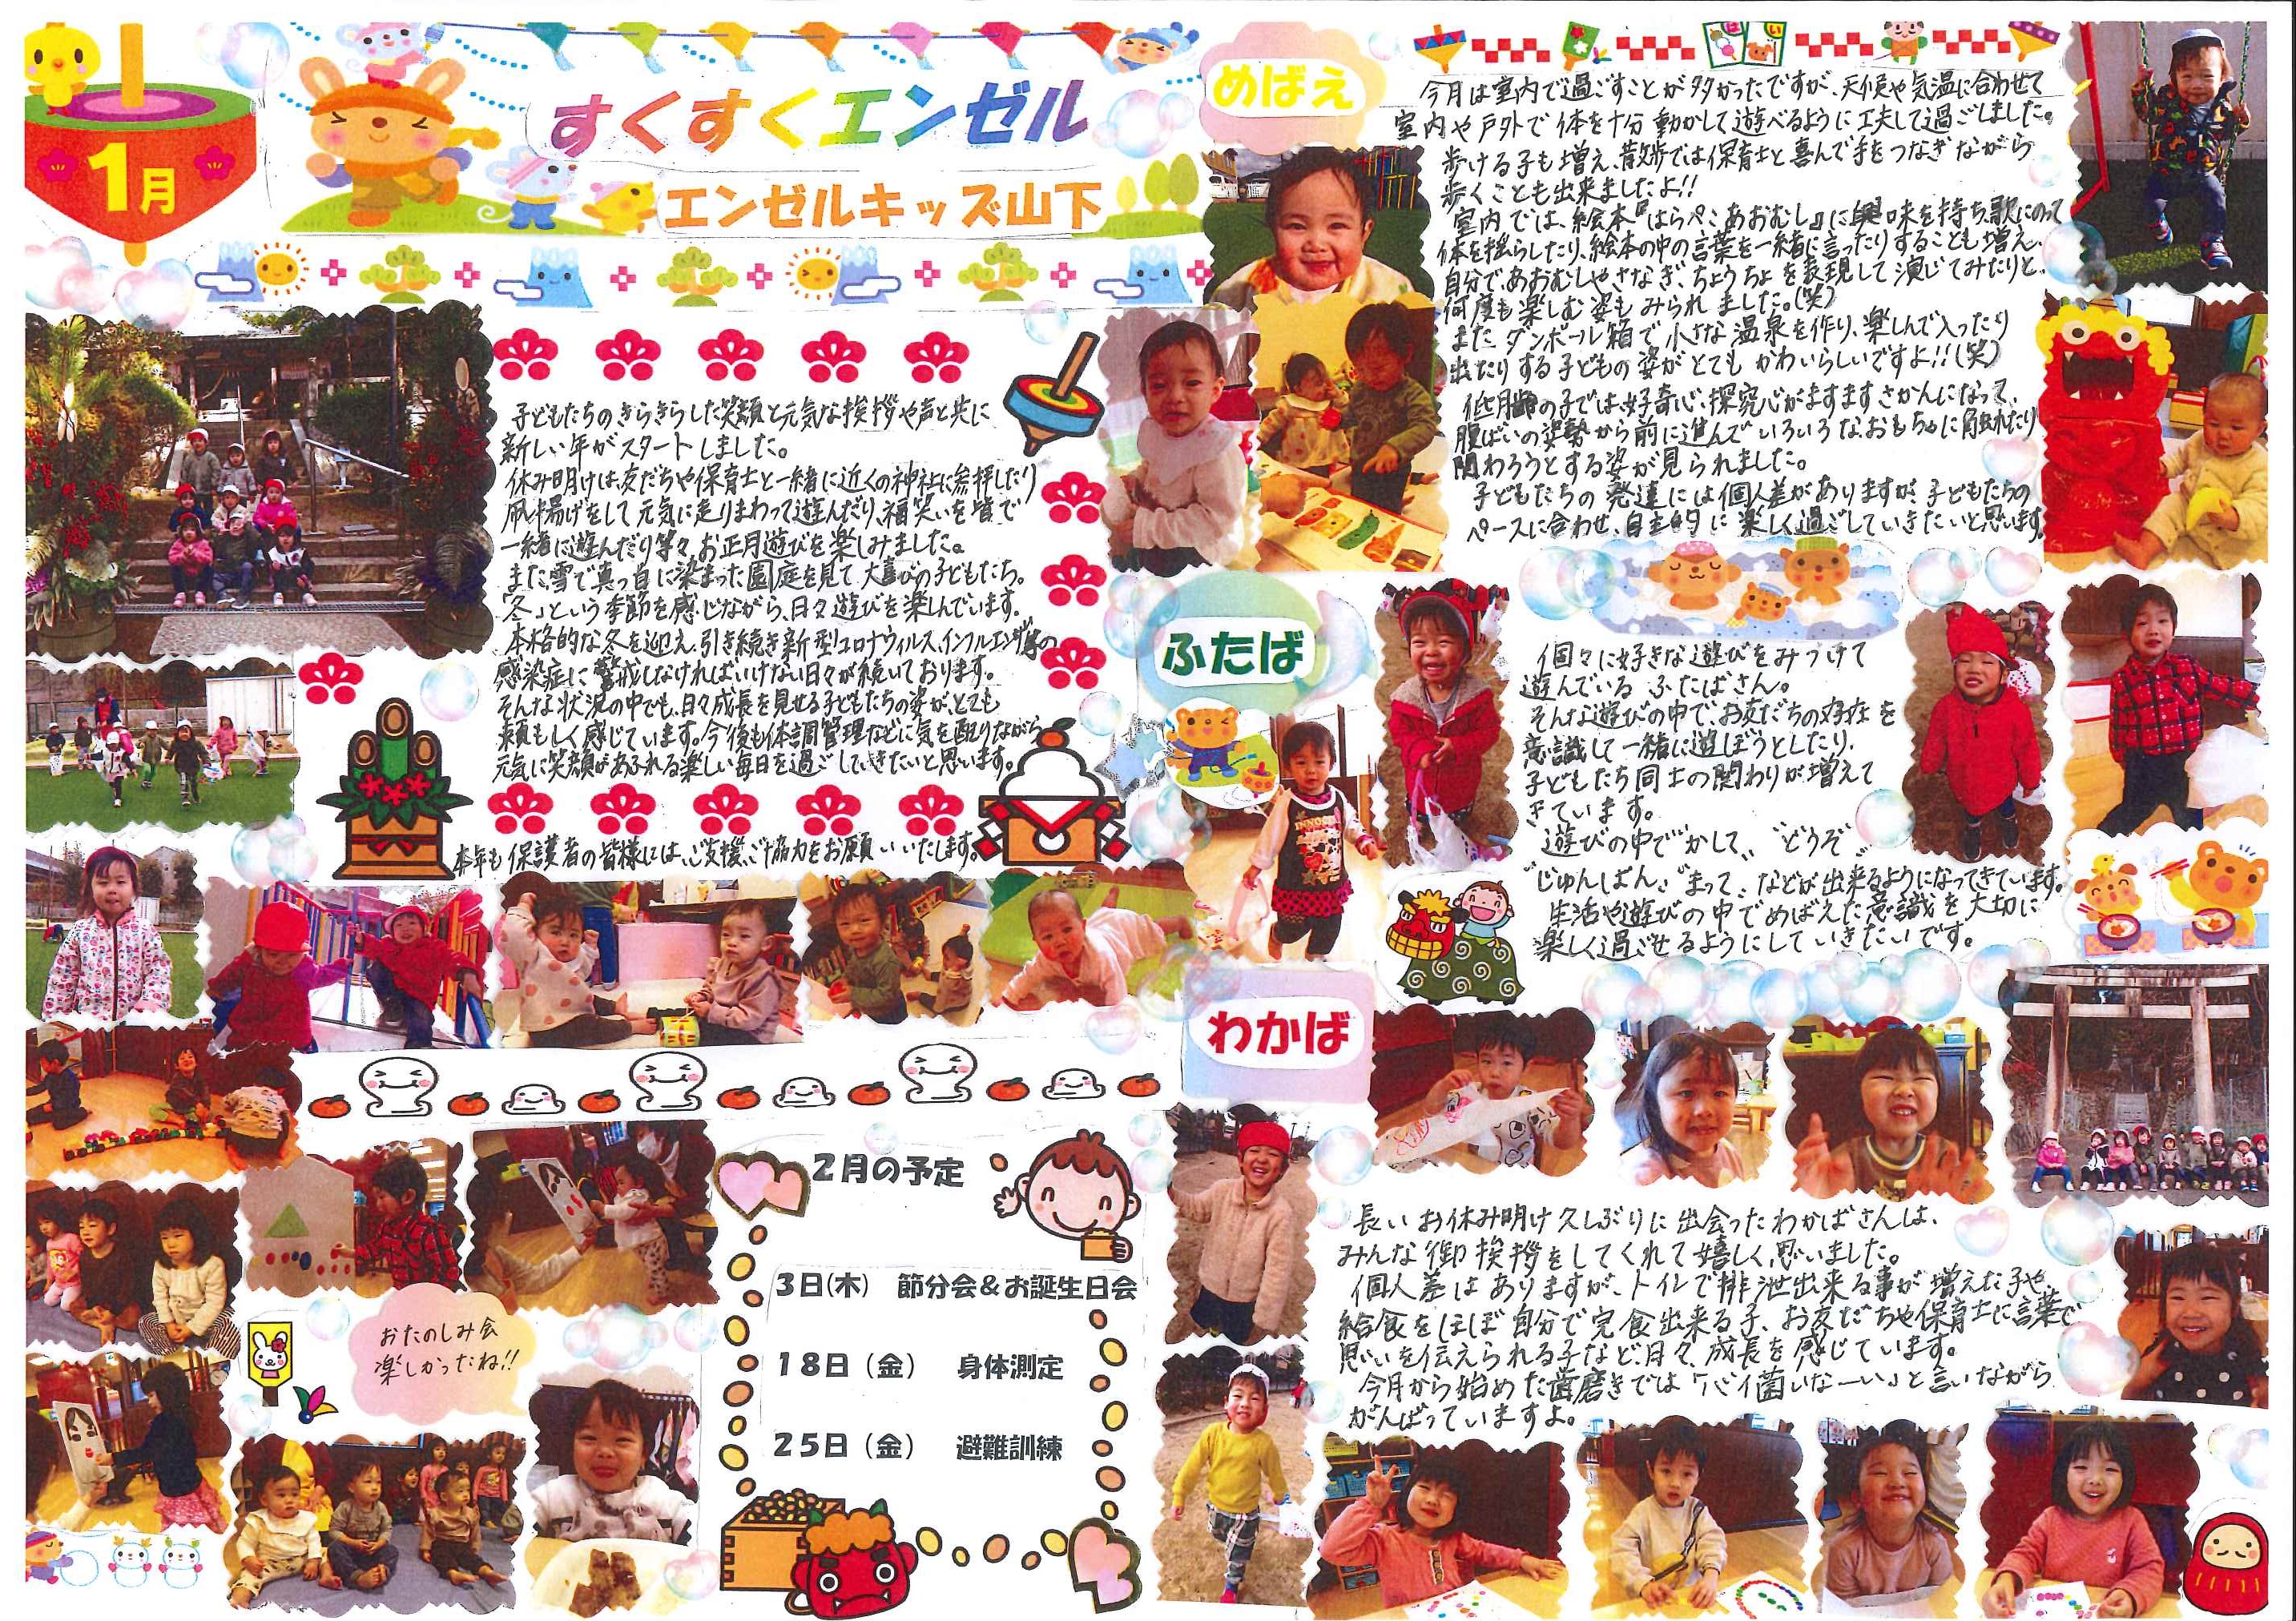 1月
すくすくエンゼル
エンゼルキッズ山下
子どもたちのきらきらした笑顔と元気な挨拶や声と共に
新しい年がスタートしました。
休み明けは、友だちや保育士と一緒に近くの神社に参拝したり
凧揚げをして元気に走りまわって遊んだり、福笑いを皆で
一緒に遊んだり等々、お正月遊びを楽しみました。
また、雪で真っ白に染まった園庭を見て、大喜びの子どもたち。
「冬」という季節を感じながら、日々遊びを楽しんでいます。
本格的な冬を迎え、引き続き新型コロナウィルス、インフルエンザ等の
感染症に警戒しなければいけない日々が続いております。
そんな状況の中でも、日々成長を見せる子どもたちの姿が、とても
頼もしく感じています。今後も体調管理などに気を配りながら
元気に笑顔があふれる楽しい毎日を過ごしていきたいと思います。
本年も保護者の皆様には、ご支援、ご協力をお願いいたします。
めばえ
今月は室内で過ごすことが多かったですが、天候や気温に合わせて
室内や戸外で体を十分動かして遊べるように工夫して過ごしました。
歩ける子も増え、散歩では保育士と喜んで手をつなぎながら
歩くことも出来ましたよ!!
室内では、絵本『はらぺこあおむし』に興味を持ち歌にのって
体を揺らしたり、絵本の中の言葉を一緒に言ったりすることも増え、
自分で、あおむしやさなぎ、ちょうちょを表現して演じてみたりと、
何度も楽しむ姿もみられました。(笑)
またダンボール箱で小さな温泉を作り、楽しんで入ったり
出たりする子どもの姿がとてもかわいらしいですよ!!(笑)
低月齢の子では、好奇心、探究心がますますさかんになって、
腹ばいの姿勢から前に進んでいろいろなおもちゃに触れたり
関わろうとする姿が見られました。
子どもたちの発達には個人差がありますが、子どもたちの
ペースに合わせ、自主的に楽しく過ごしていきたいと思います。
ふたば
個々に好きな遊びをみつけて
遊んでいるふたばさん。
そんな遊びの中で、お友だちの存在を
意識して一緒に遊ぼうとしたり、
子どもたち同士の関わりが増えて
きています。
遊びの中で"かして" "どうぞ"
"じゅんばん" "まって" などが出来るようになってきています。
生活や遊びの中でめばえた意識を大切に
楽しく過ごせるようにしていきたいです。
わかば
長いお休み明け久しぶりに出会ったわかばさんは、
みんな御挨拶をしてくれて嬉しく思いました。
個人差はありますが、トイレで排泄出来る事が増えた子や、
給食をほぼ自分で完食出来る子、お友だちや保育士に言葉で
思いを伝えられる子など、日々、成長を感じています。
今月から始めた歯磨きでは「バイ菌いなーい」と言いながら
がんばっていますよ。
2月の予定
3日(木) 節分会&お誕生日会
18日(金) 身体測定
25日(金) 避難訓練
おたのしみ会
楽しかったね!!